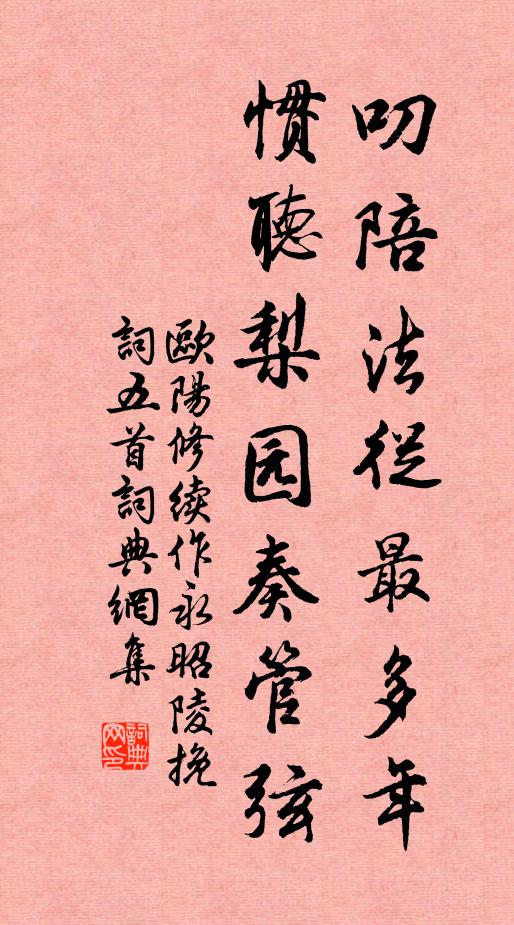 叨陪法從最多年
慣聽梨园奏管弦
歐陽修續作永昭陵挽
詞五首詞典網集
詞典网印